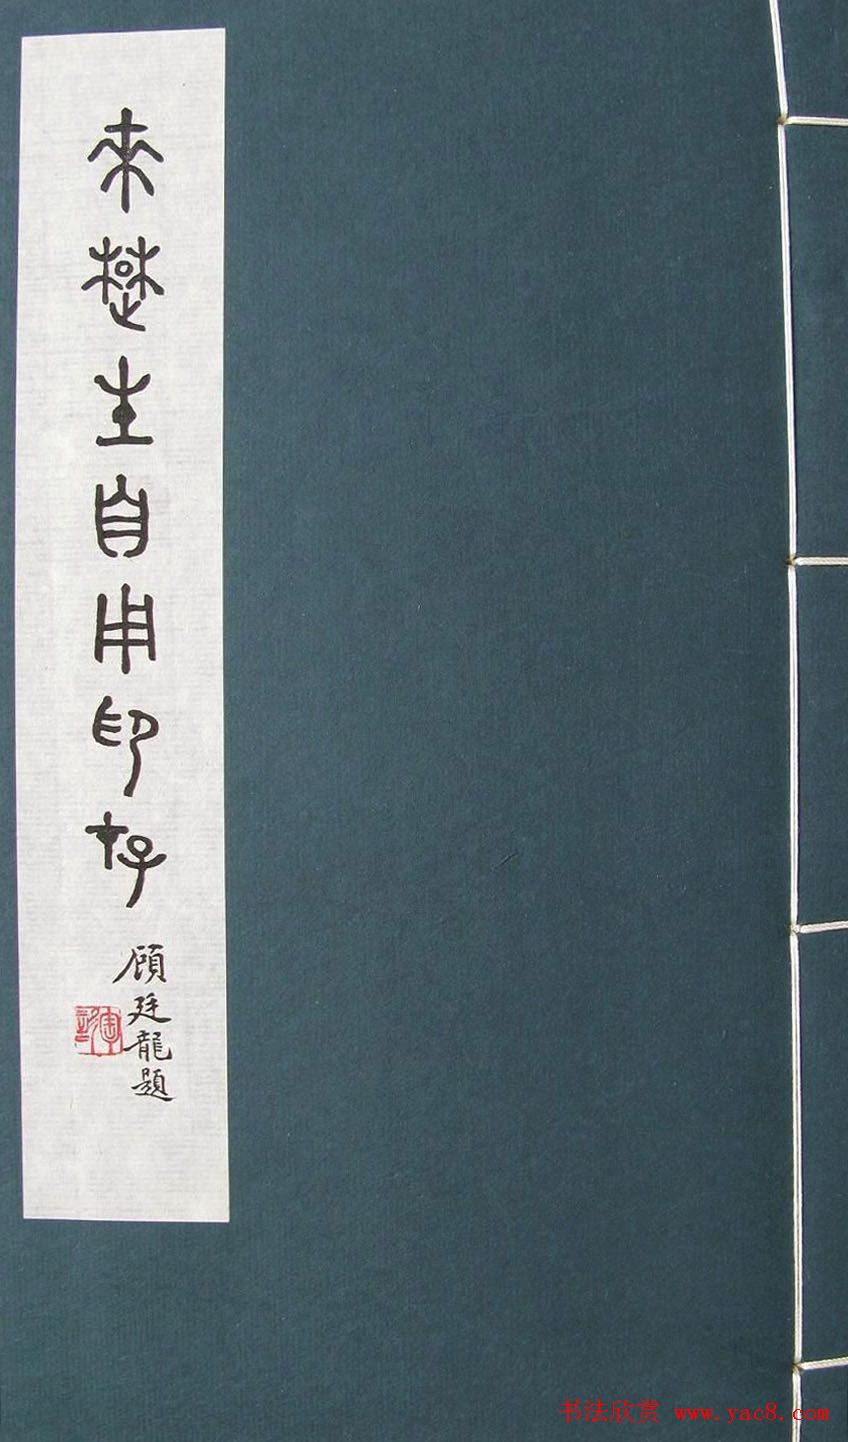 来楚生自用印存
顧廷龍題
书法欣赏 www.yac8.com